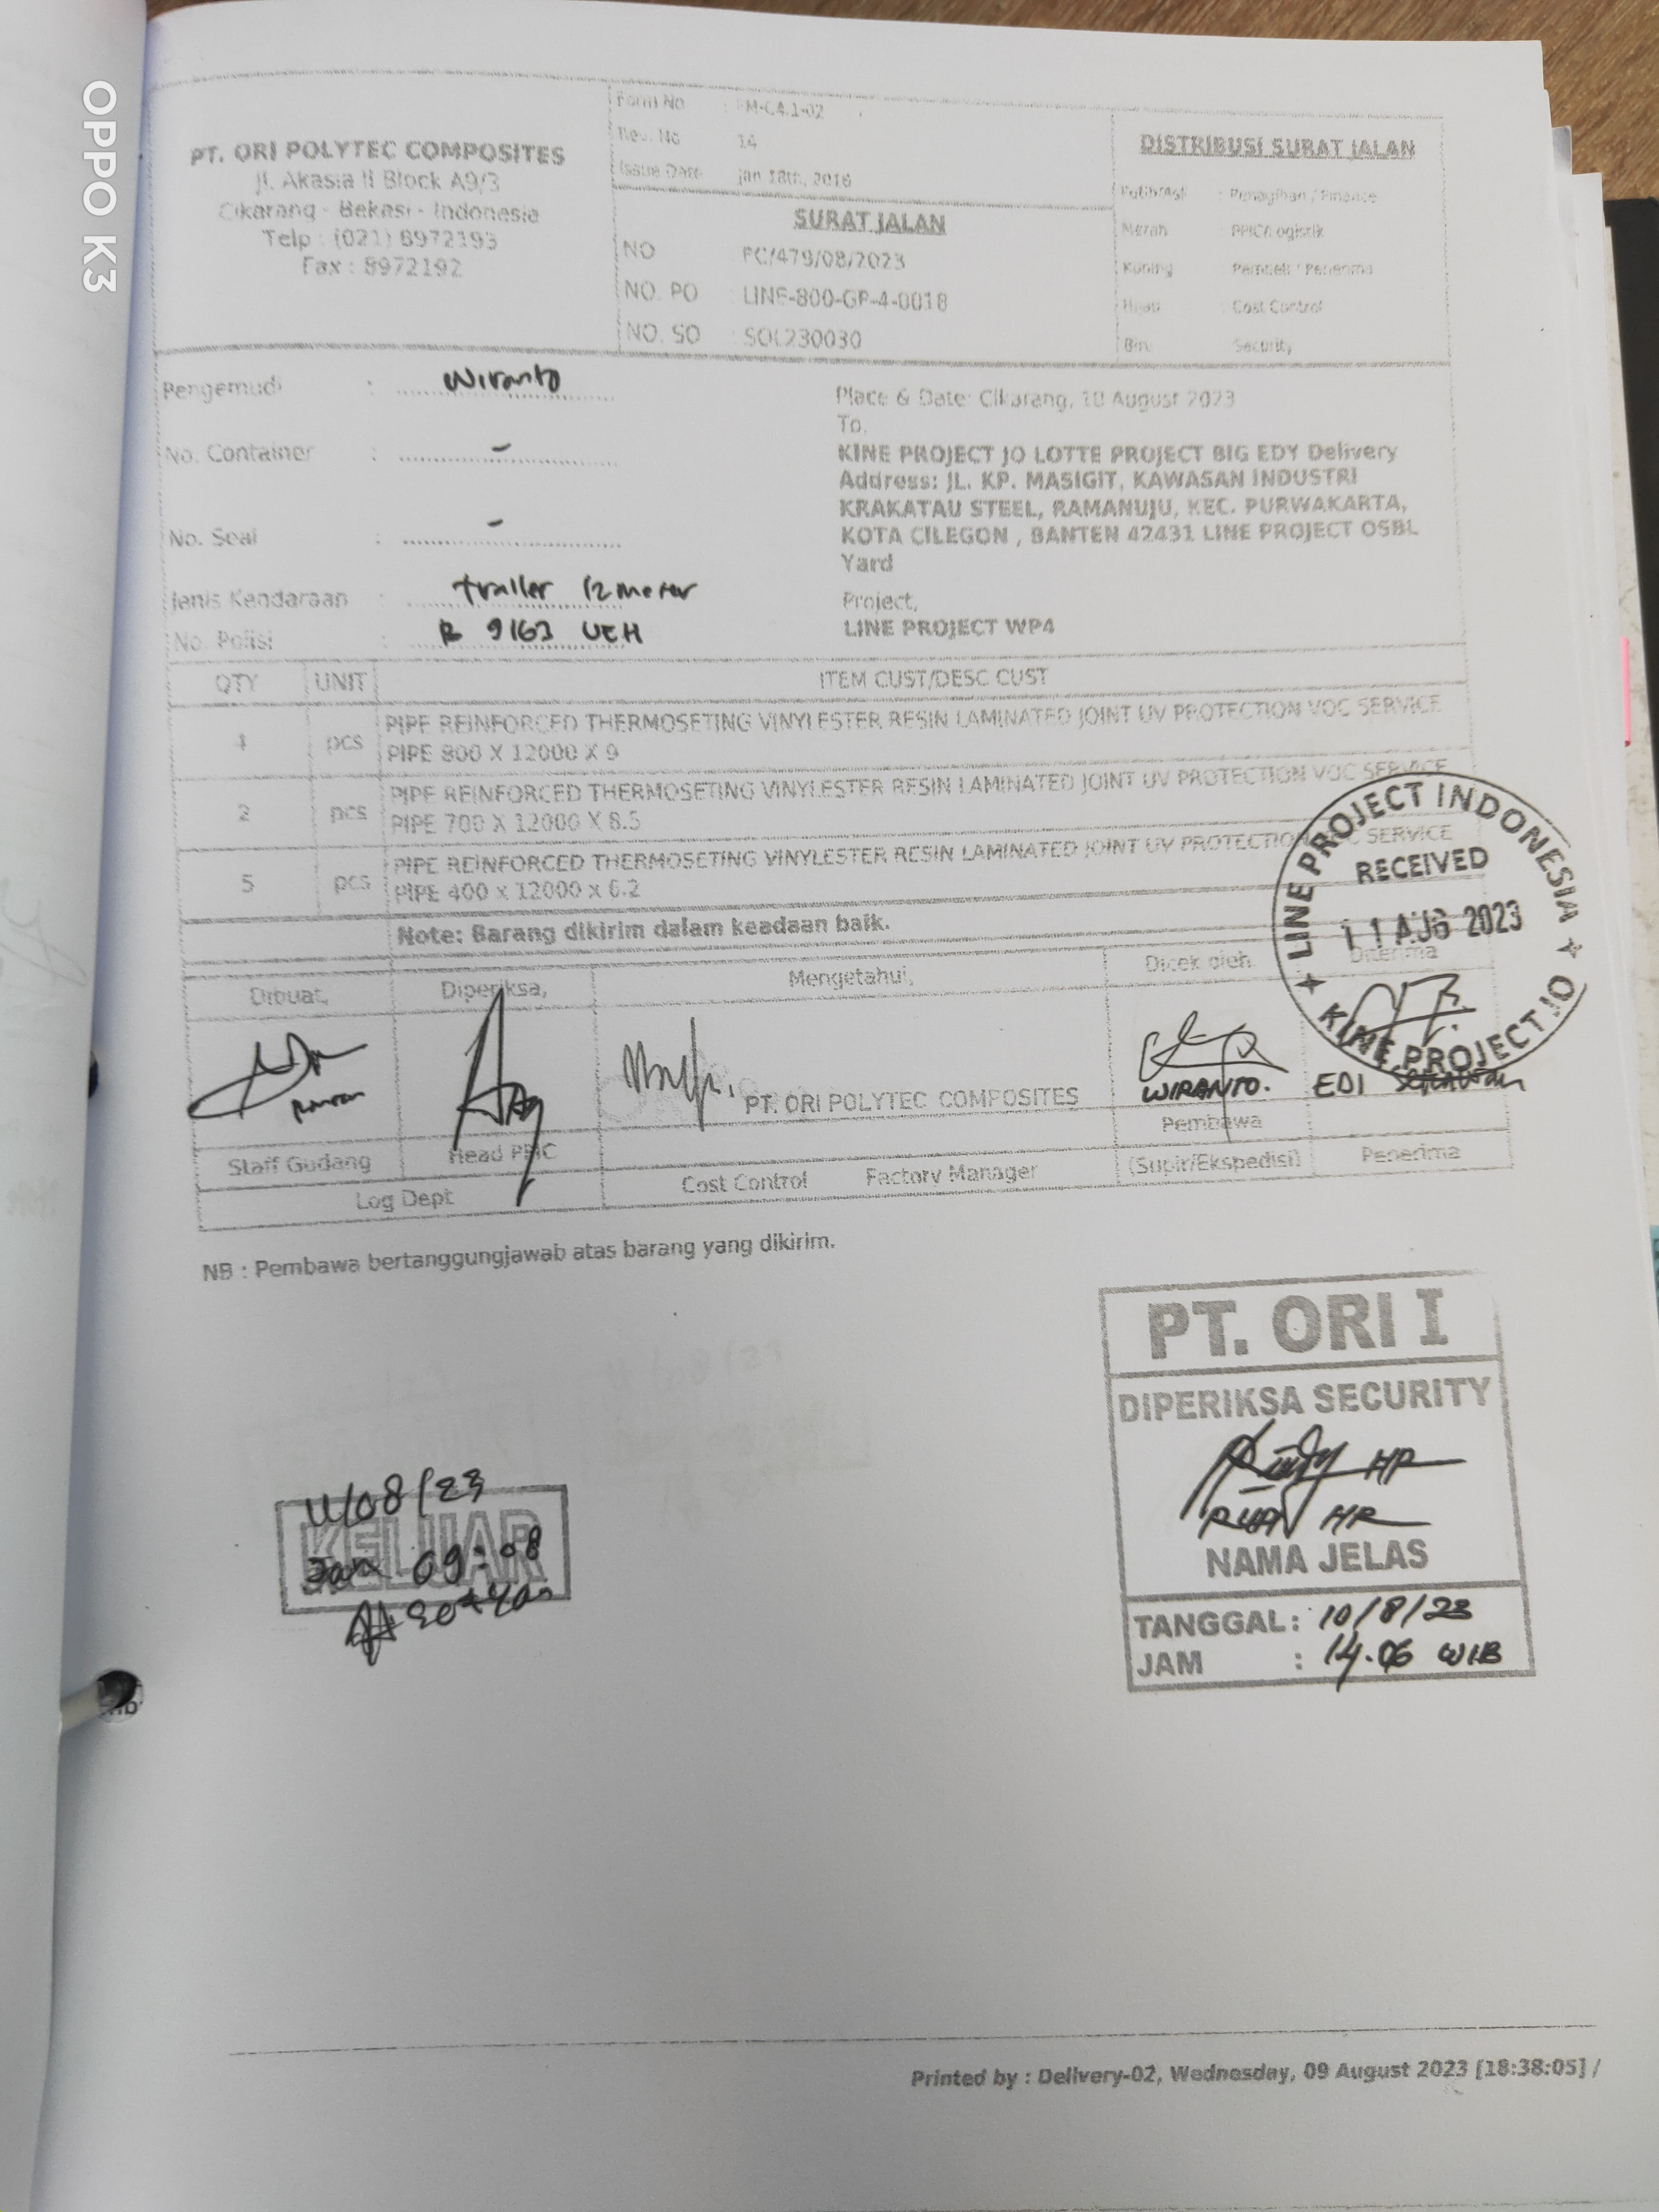 OPPO K3
PT. ORI POLYTEC COMPOSITES
Jl. Akasia II Block A9/3
Cikarang - Bekasi - Indonesia
Telp : (021) 8972193
Fax : 8972192
Form No : FM-C4.1-02
Rev. No 14
Issue Date Jan 18th, 2016
SURAT JALAN
NO PC/479/08/2023
NO. PO LINE-800-GP-4-0018
NO. SO : SOL230030
DISTRIBUSI SURAT JALAN
Putih/Asli : Penagihan / Finance
Merah : PPIC/Logistik
Kuning : Pembeli / Penerima
Hijau : Cost Control
Biru Security
Pengemudi : Wiranto
No. Container : -
No. Seal : -
Jenis Kendaraan : trailer 12 meter
No. Polisi : 9163 UEH
Place & Date: Cikarang, 10 August 2023
To.
KINE PROJECT JO LOTTE PROJECT BIG EDY Delivery
Address: JL. KP. MASIGIT, KAWASAN INDUSTRI
KRAKATAU STEEL, RAMANUJU, KEC. PURWAKARTA,
KOTA CILEGON , BANTEN 42431 LINE PROJECT OSBL
Yard
Project,
LINE PROJECT WP4
QTY UNIT ITEM CUST/DESC CUST
pcs PIPE REINFORCED THERMOSETING VINYLESTER RESIN LAMINATED JOINT UV PROTECTION VOC SERVICE
PIPE 800 X 12000 X 9
2 pcs PIPE REINFORCED THERMOSETING VINYLESTER RESIN LAMINATED JOINT UV PROTECTION VOC SERVICE
PIPE 700 X 12000 X 8.5
5 pcs PIPE REINFORCED THERMOSETING VINYLESTER RESIN LAMINATED JOINT UV PROTECTION VOC SERVICE
PIPE 400 X 12000 X 6.2
Note: Barang dikirim dalam keadaan baik.
LINE PROJECT INDONESIA
RECEIVED
11 AUG 2023
KINE PROJECT JO
Dibuat, Diperiksa, Mengetahui, Dicek oleh Diterima
PT. ORI POLYTEC COMPOSITES
WIRANTO. EDI
Pembawa
Staff Gudang Head PPIC Cost Control Factory Manager (Supir/Ekspedisi) Penerima
Log Dept
NB : Pembawa bertanggungjawab atas barang yang dikirim.
PT. ORI I
DIPERIKSA SECURITY
HR
HR
NAMA JELAS
TANGGAL : 10/8/23
JAM : 14.06 WIB
11/08/23
KELUAR
Jam 09:08
Printed by : Delivery-02, Wednesday, 09 August 2023 [18:38:05] /